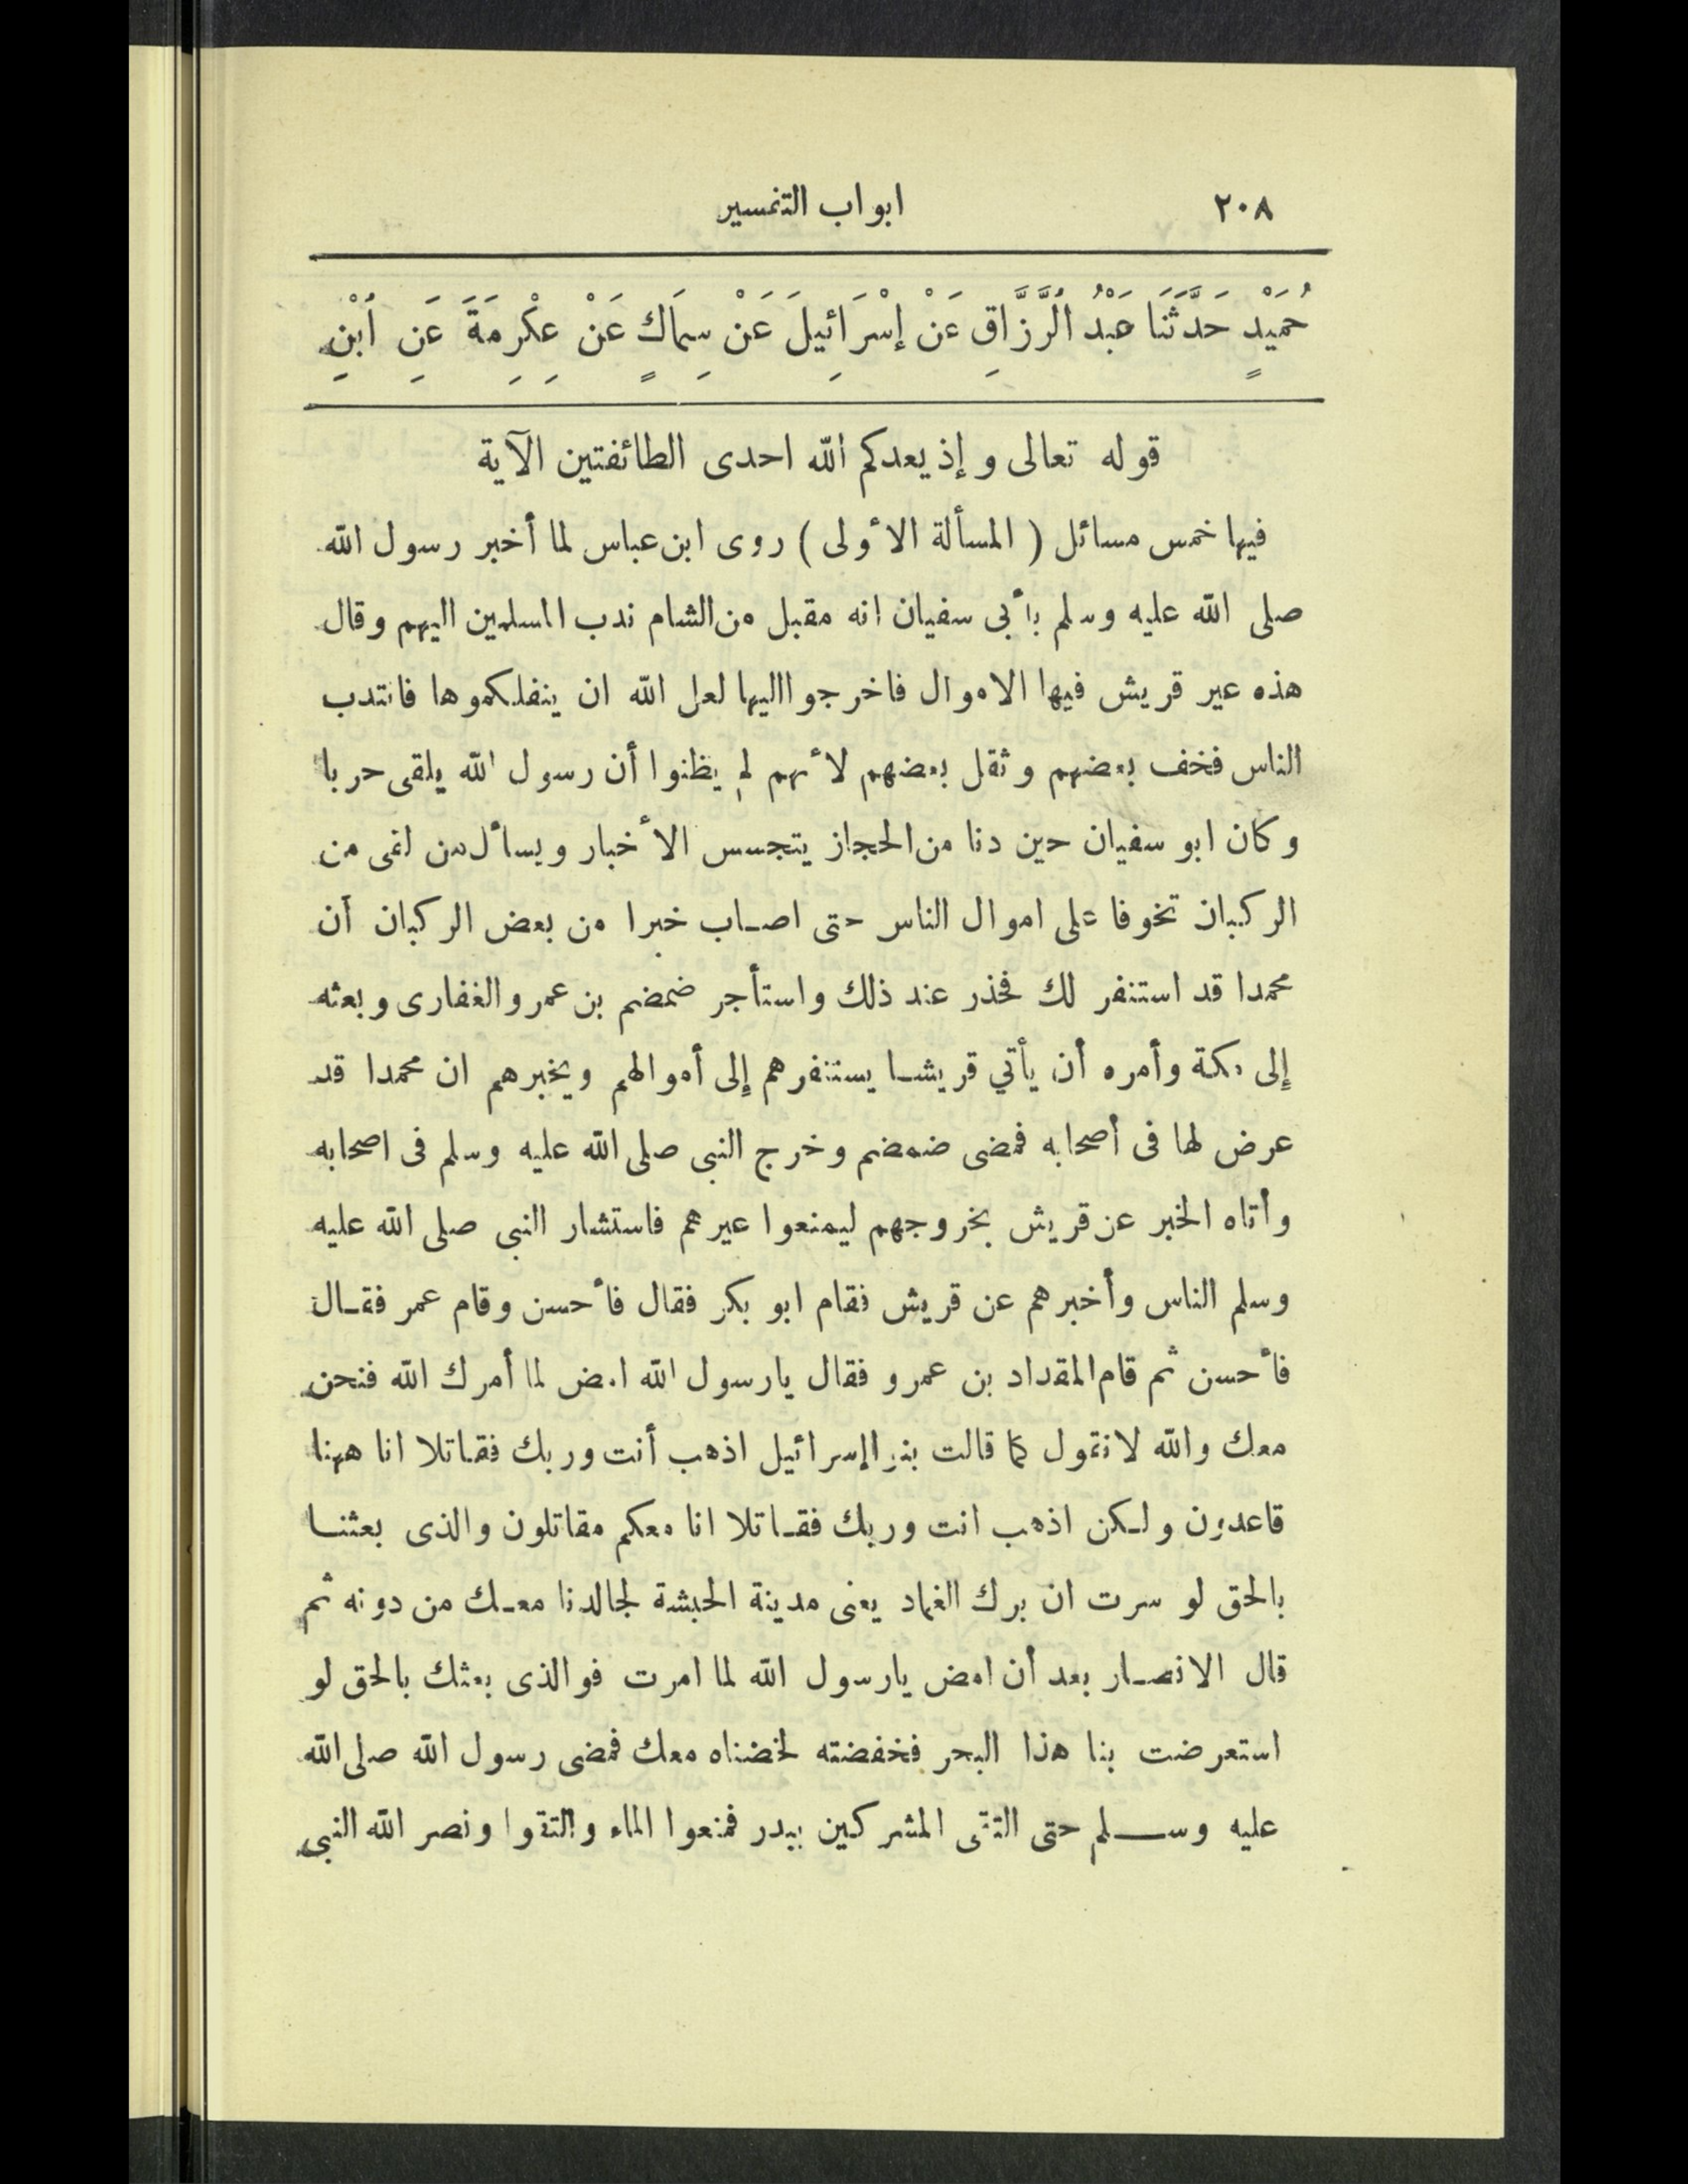 ٢٠٨ ابواب التفسير
حُمَيْدٍ حَدَّثَنَا عَبْدُ الرَّزَّاقِ عَنْ إِسْرَائِيلَ عَنْ سِمَاكٍ عَنْ عِكْرِمَةَ عَنِ ابْنِ
قوله تعالى وإذ يعدكم الله احدى الطائفتين الآية
فيها خمس مسائل ( المسألة الأولى ) روى ابن عباس لما أخبر رسول الله
صلى الله عليه وسلم بأبى سفيان انه مقبل من الشام ندب المسلمين اليهم وقال
هذه عير قريش فيها الاموال فاخرجوا اليها لعل الله ان ينفلكموها فانتدب
الناس فخف بعضهم وثقل بعضهم لأنهم لم يظنوا أن رسول الله يلقى حربا
وكان ابو سفيان حين دنا من الحجاز يتجسس الأخبار ويسأل من لقى من
الركبان تخوفا على اموال الناس حتى اصاب خبرا من بعض الركبان أن
محمدا قد استنفر لك فحذر عند ذلك واستأجر ضمضم بن عمرو الغفارى وبعثه
إلى مكة وأمره أن يأتي قريشا يستنفرهم إلى أموالهم ويخبرهم ان محمدا قد
عرض لها فى أصحابه فمضى ضمضم وخرج النبى صلى الله عليه وسلم فى اصحابه
وأتاه الخبر عن قريش بخروجهم ليمنعوا عيرهم فاستشار النبى صلى الله عليه
وسلم الناس وأخبرهم عن قريش فقام ابو بكر فقال فأحسن وقام عمر فقال
فأحسن ثم قام المقداد بن عمرو فقال يارسول الله امض لما أمرك الله فنحن
معك والله لانقول كما قالت بنو إسرائيل اذهب أنت وربك فقاتلا انا ههنا
قاعدون ولكن اذهب انت وربك فقاتلا انا معكم مقاتلون والذى بعثنا
بالحق لو سرت ان برك الغماد يعنى مدينة الحبشة لجالدنا معك من دونه ثم
قال الانصار بعد أن امض يارسول الله لما امرت فوالذى بعثك بالحق لو
استعرضت بنا هذا البحر فخفضته لخضناه معك فمضى رسول الله صلى الله
عليه وسلم حتى التقى المشركين ببدر فمنعوا الماء والتقوا ونصر الله النبى